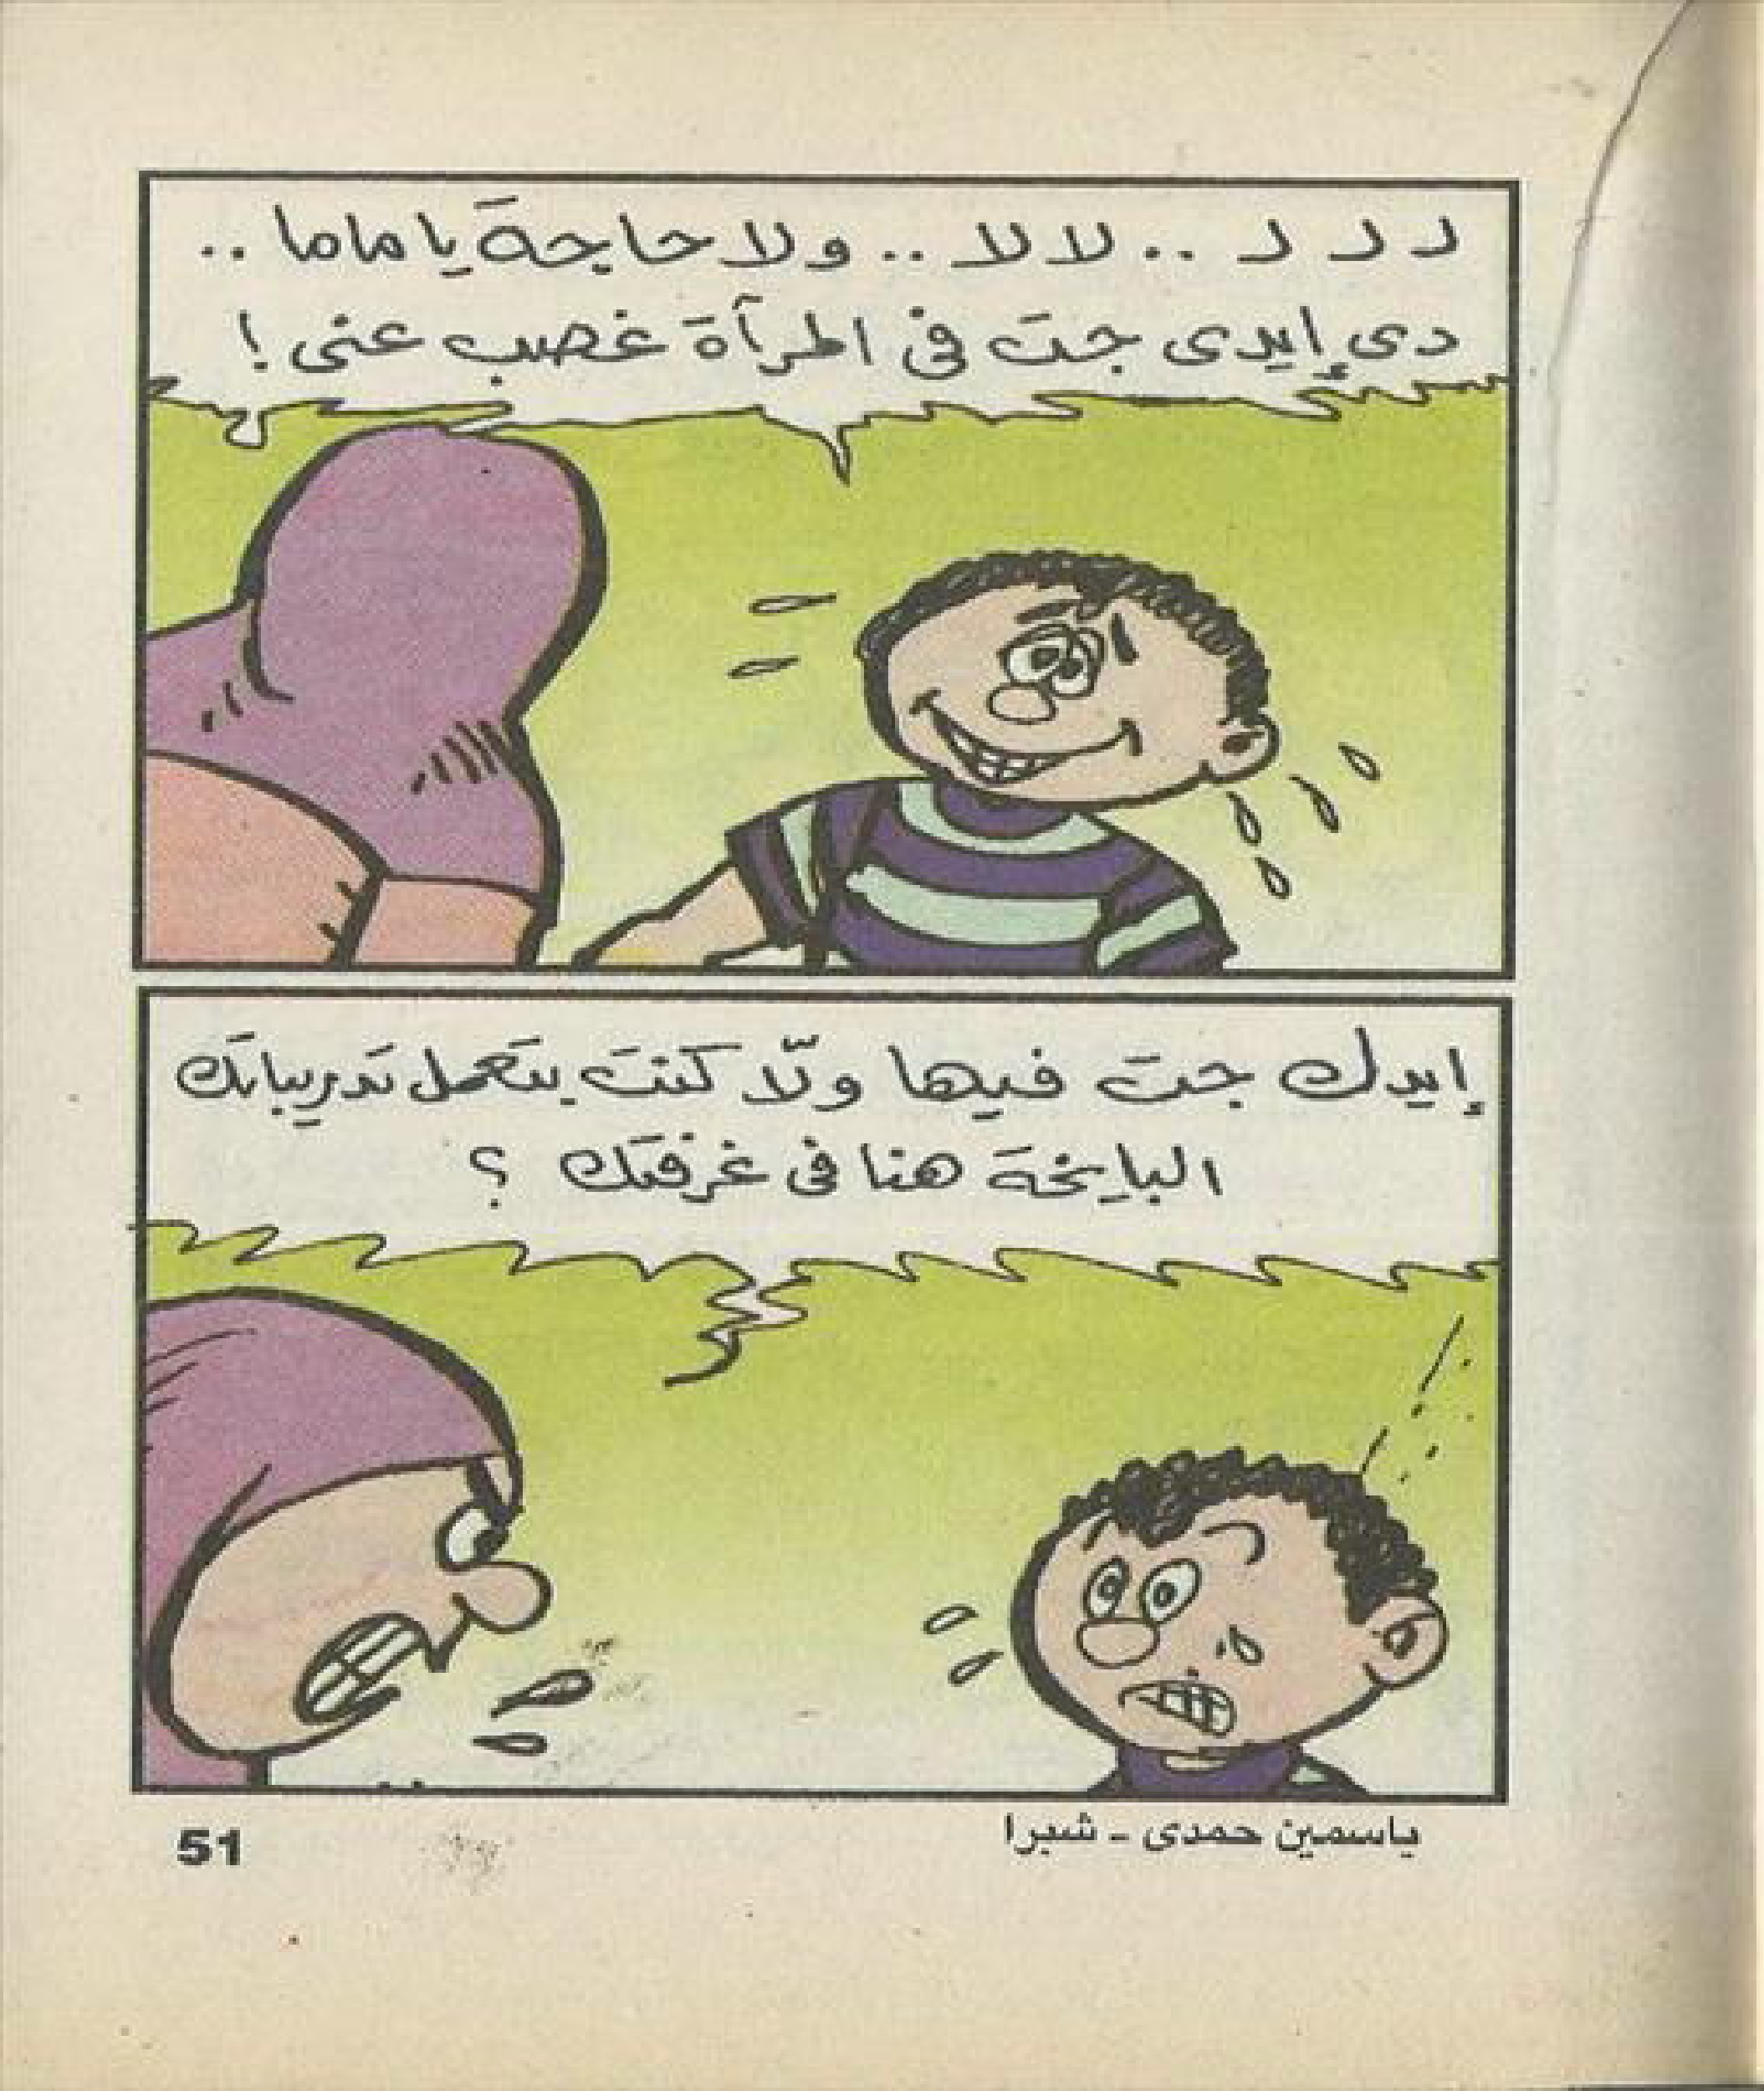 د د د .. لا لا .. ولا حاجة يا ماما ..
دى إيدى جت فى المرآة غصب عنى !
إيدك جت فيها ولّا كنت بتعمل تدريباتك
البايخة هنا فى غرفتك ؟
ياسمين حمدى - شبرا
51